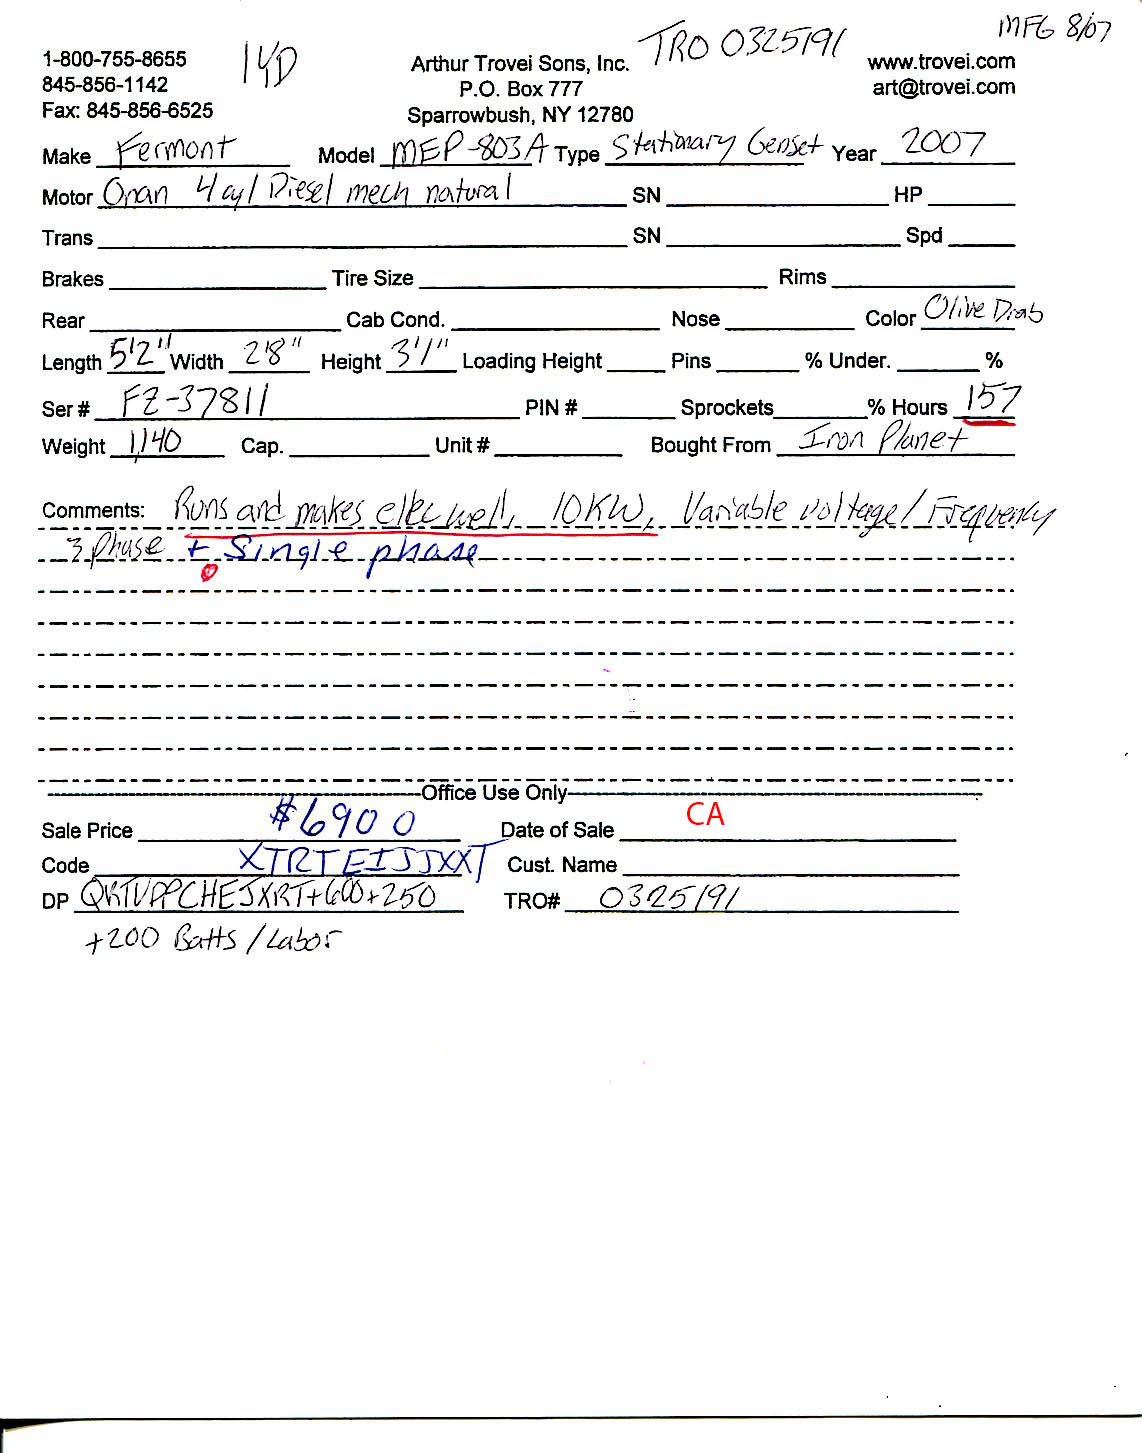 MFG 8/07
1-800-755-8655 14D Arthur Trovei Sons, Inc. TRO 0325191 www.trovei.com
845-856-1142 P.O. Box 777 art@trovei.com
Fax: 845-856-6525 Sparrowbush, NY 12780
Make Fermont Model MEP-803A Type Stationary Genset Year 2007
Motor Onan 4 cyl Diesel mech natural SN HP
Trans SN Spd
Brakes Tire Size Rims
Rear Cab Cond. Nose Color Olive Drab
Length 5'2" Width 2'8" Height 3'1" Loading Height Pins % Under. %
Ser # FZ-37811 PIN # Sprockets % Hours 157
Weight 1,140 Cap. Unit # Bought From Iron Planet
Comments: Runs and makes elec well, 10KW, Variable voltage/Frequency
3 Phase + Single phase
Office Use Only
Sale Price $6900 Date of Sale CA
Code XTRTEIJJXXT Cust. Name
DP +600+250 TRO# 0325191
+200 Batts/Labor